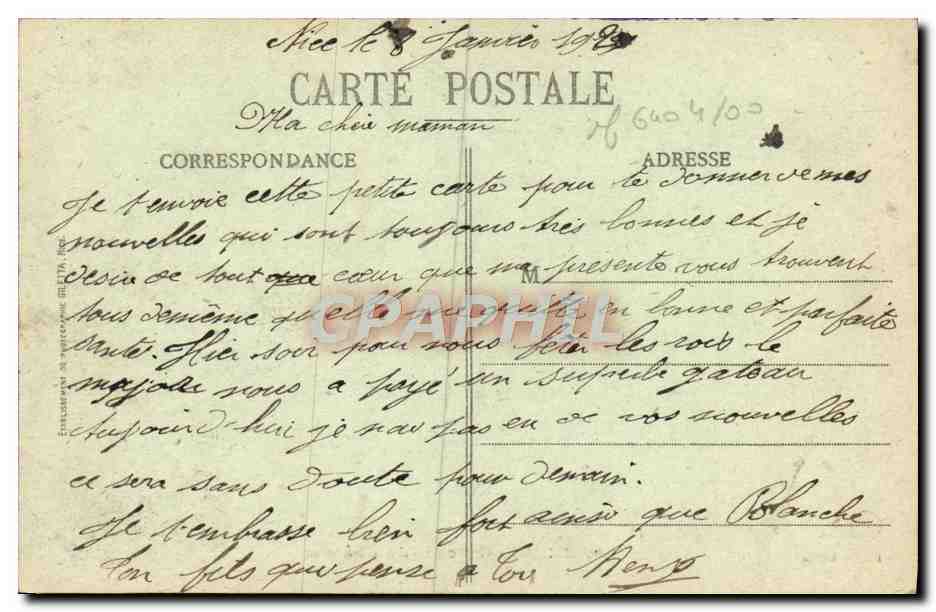 Nice le 8 Janvier 19
CARTE POSTALE
Ma chère maman
rf 6404/00
CORRESPONDANCE
ADRESSE
Je t'envoie cette petite carte pour te donner de mes
nouvelles qui sont toujours très bonnes et je
desire de tout que cœur que ma presente vous trouvent
M
tous de même quelle me quitte en bonne et parfaite
santé. Hier soir pour nous feter les rois le
major nous a payé un superbe gateau
Aujourd'hui je nai pas eu de vos nouvelles
ce sera sans doute pour demain.
Je t'embrasse bien fort ainsi que Blanche
Ton fils qui pense a toi
CPAPHIL
ETABLISSEMENT DE PHOTOGRAPHIE GILETTA, NICE